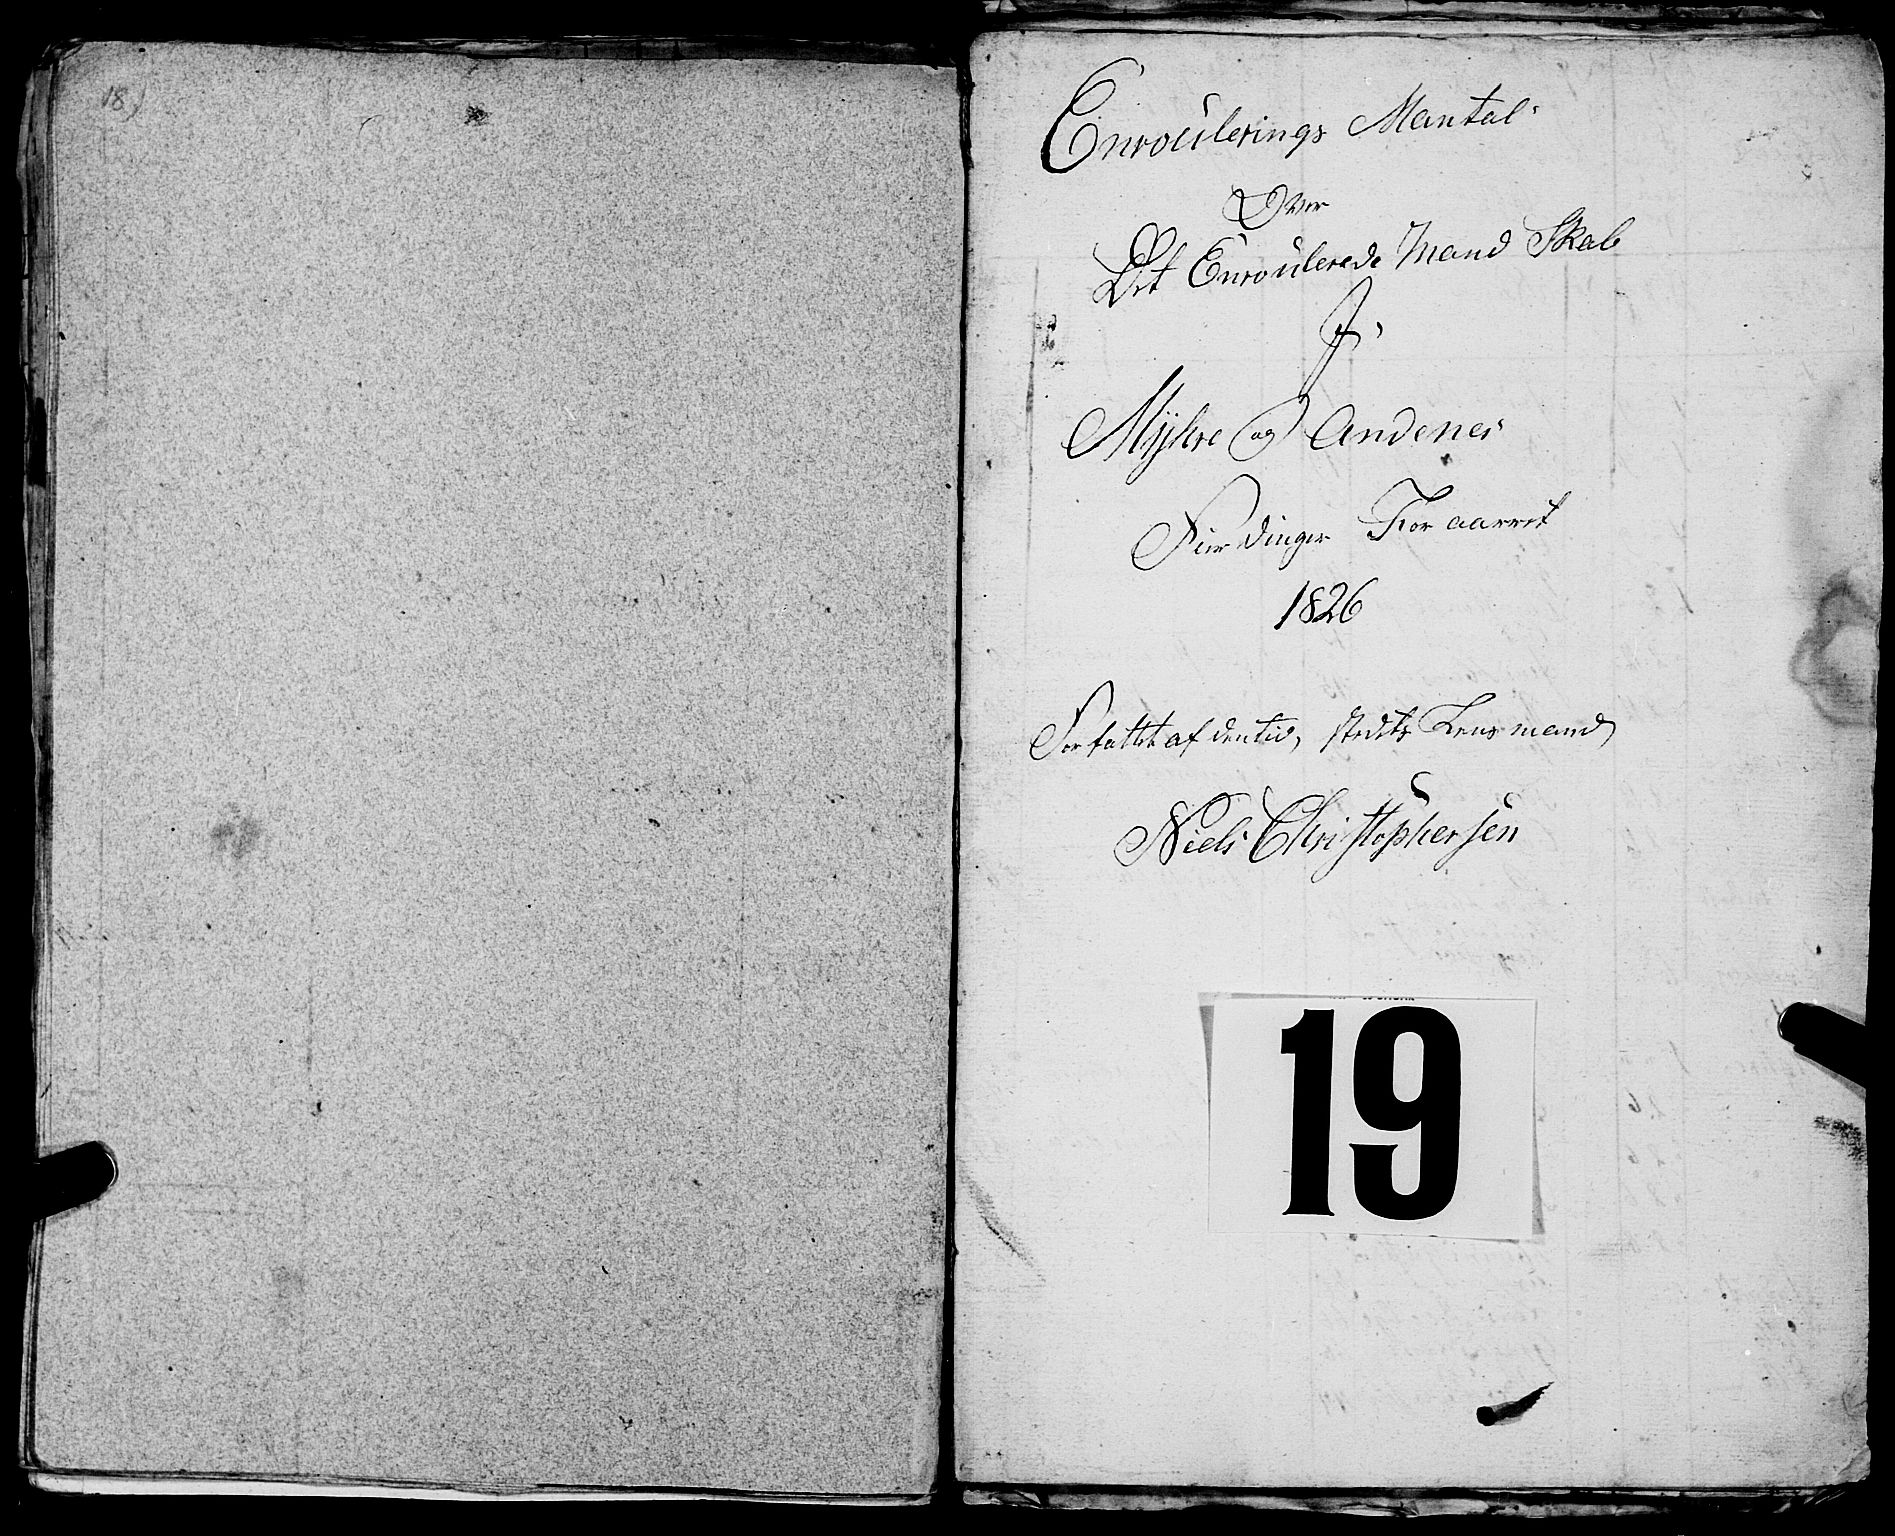 18)
Enroulerings Mantal
Over
Det Enroulerede Mand Skab
I
Myhre og Andenes
Fierdinger For aarret
1826
Forfattet af den tid, stedets Lensmand
Niels Christophersen
19